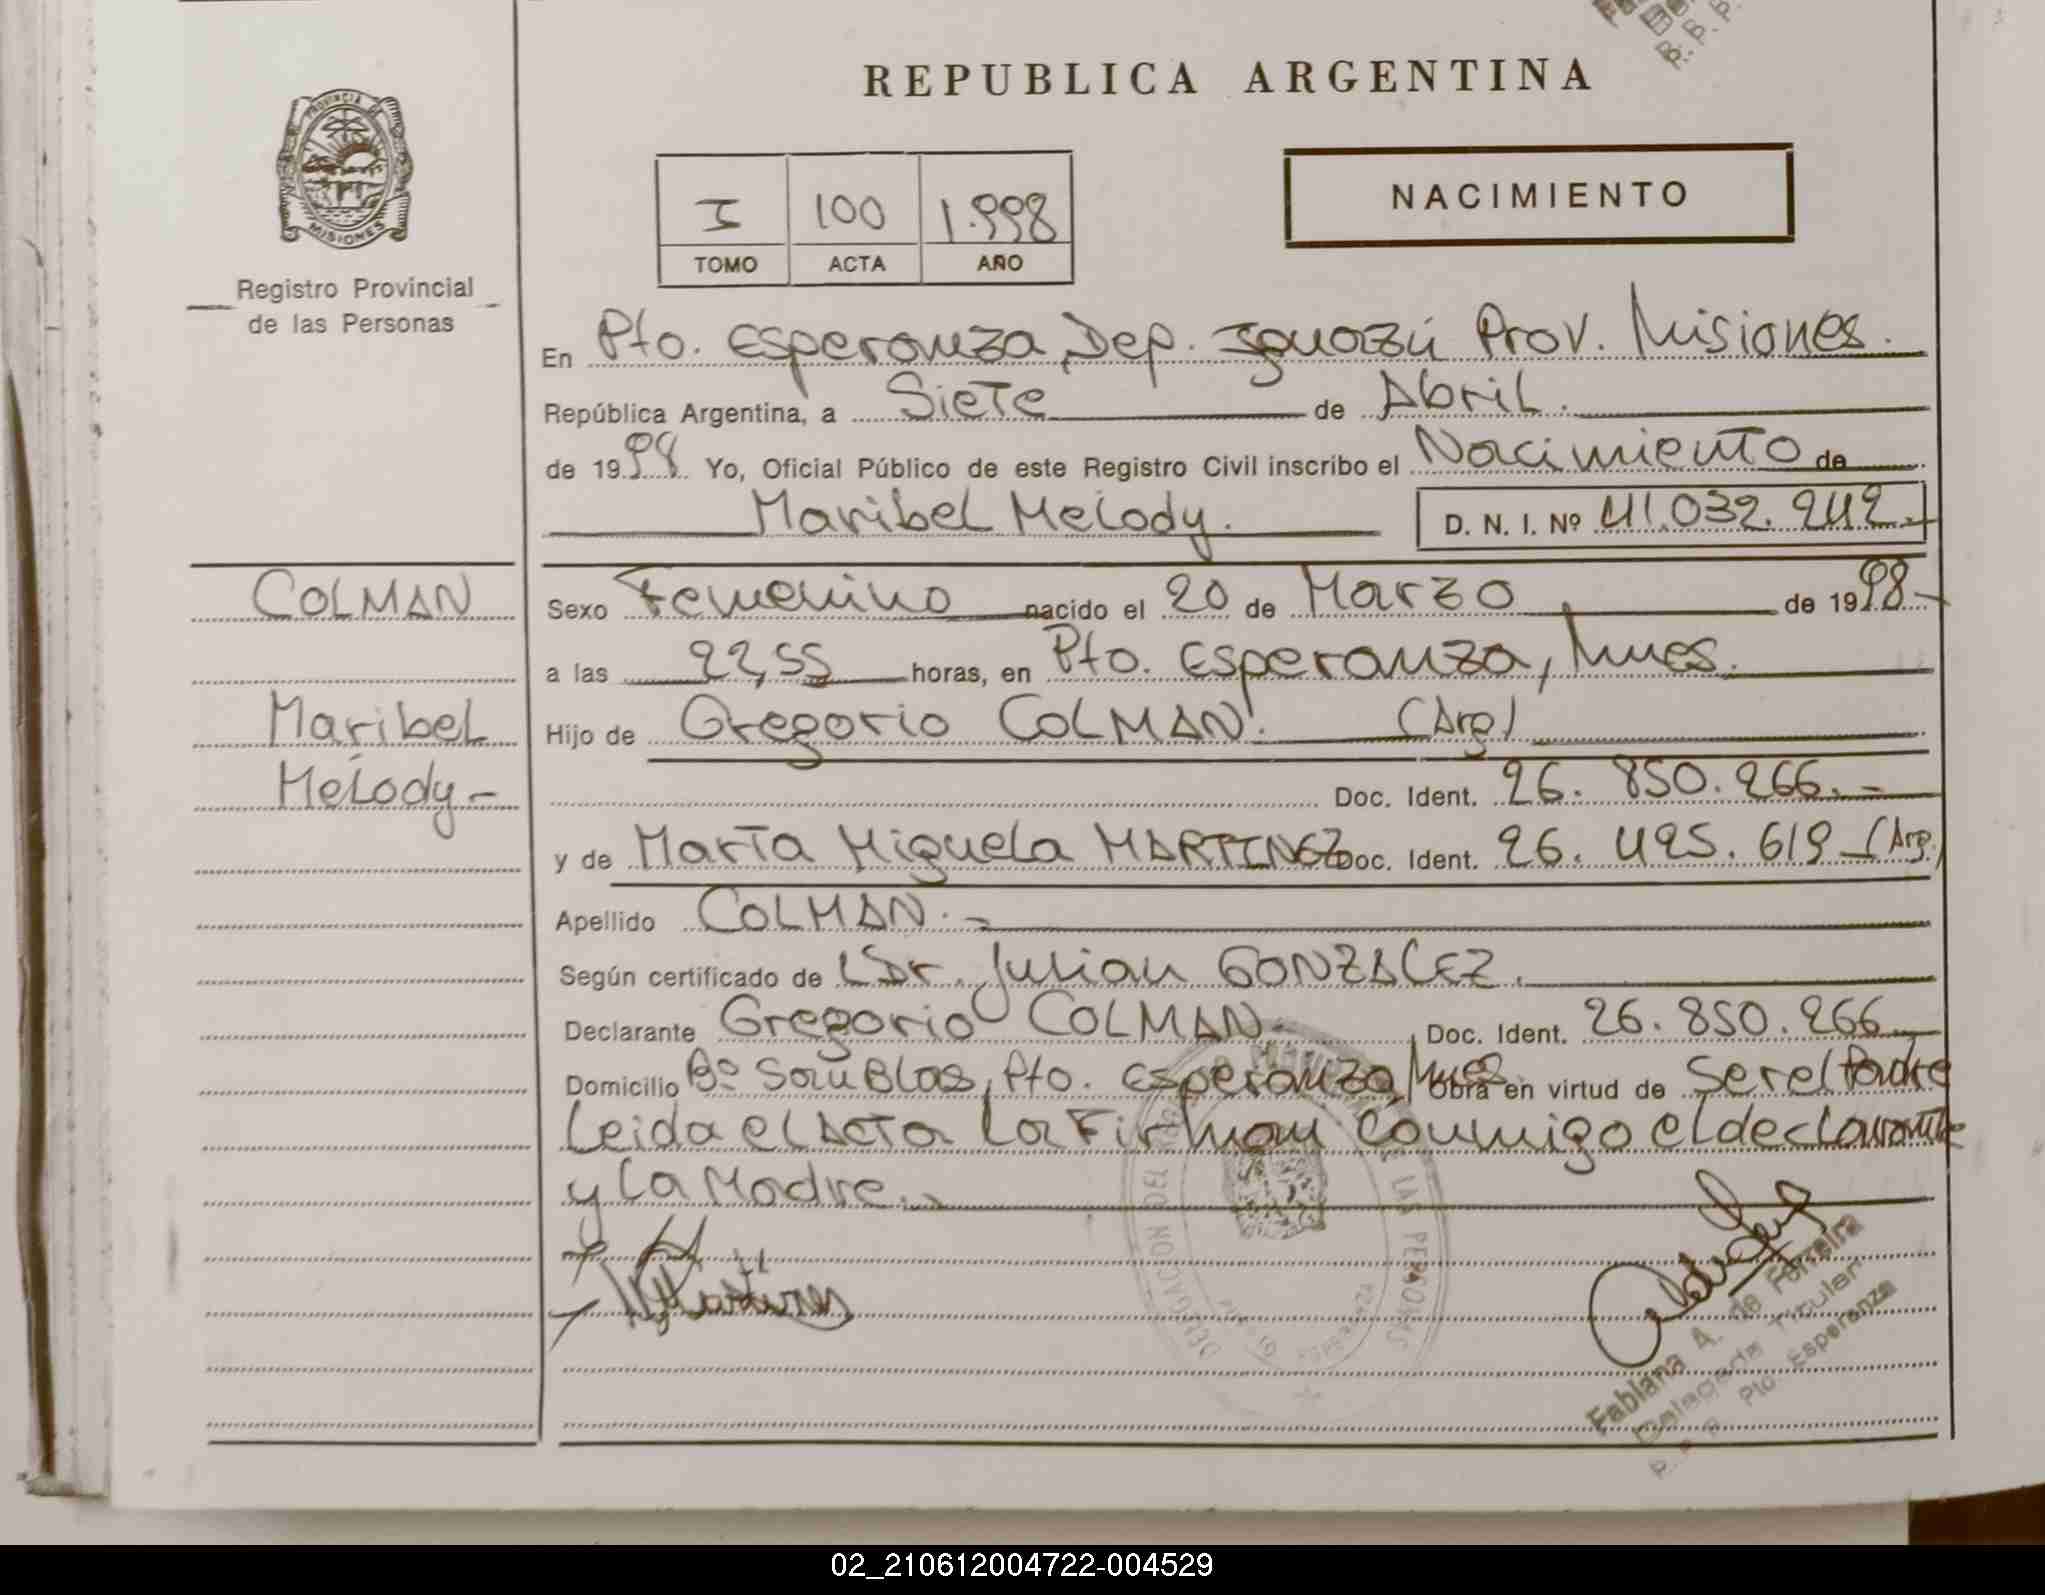 REPUBLICA ARGENTINA
PROVINCIA DE
MISIONES
Registro Provincial
de las Personas
I 100 1.998
TOMO ACTA AÑO
NACIMIENTO
En Pto. Esperanza, Dep. Iguazú Prov. Misiones.
República Argentina, a Siete de Abril.
de 1998 Yo, Oficial Público de este Registro Civil inscribo el Nacimiento de
Maribel Melody. D. N. I. Nº 41.032.242
COLMAN
Maribel
Melody-
Sexo Femenino nacido el 20 de Marzo de 1998-
a las 22,55 horas, en Pto. Esperanza, Mnes.
Hijo de Gregorio COLMAN. (Arg)
Doc. Ident. 26.850.266.-
y de Marta Miguela MARTINEZ Doc. Ident. 26.425.619-(Arg.)
Apellido COLMAN.-
Según certificado de Dr. Julian GONZALEZ.
Declarante Gregorio COLMAN. Doc. Ident. 26.850.266
Domicilio Bº San Blas, Pto. Esperanza, Mnes Obra en virtud de Ser el Padre
Leida el Acta la Firman Conmigo el declarante
y la Madre.-
DE LAS PERSONAS
Fabiana A. de Ferreira
Delegada Titular
Pto Esperanza
02_210612004722-004529